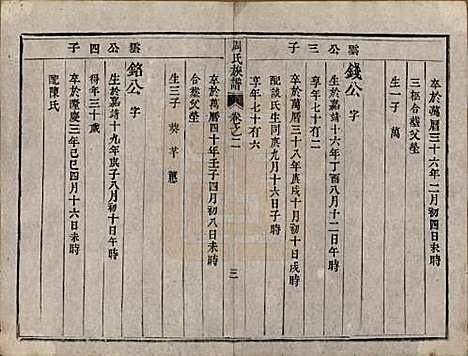 卒於萬曆三十六年二月初四日未時
三柩合葬父塋
生一子 萬
雲公三子
錢公 字
生於嘉靖十六年丁酉八月十二日午時
享年七十有二
卒於萬曆三十八年庚戌十月初十日戌時
配談氏生同庚九月十六日子時
享年七十有六
周氏族譜 卷之二 三
合葬父塋
卒於萬曆四十年壬子四月初八日未時
生三子 葵 芊 蕙
雲公四子
銘公 字
生於嘉靖十九年庚子八月初十日午時
得年三十歲
卒於隆慶三年己巳四月十六日未時
配陳氏